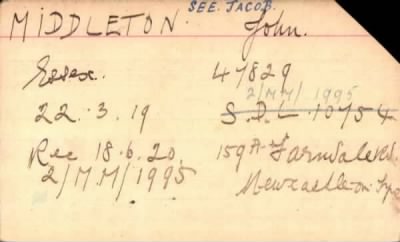 SEE. JACOB.
MIDDLETON. John.
Essex. 47829
2/MM/1995
22.3.19 S.D.L. 10754
Rec 18.6.20. 159A Farndale Rd.
2/MM/1995 Newcastle on Tyne